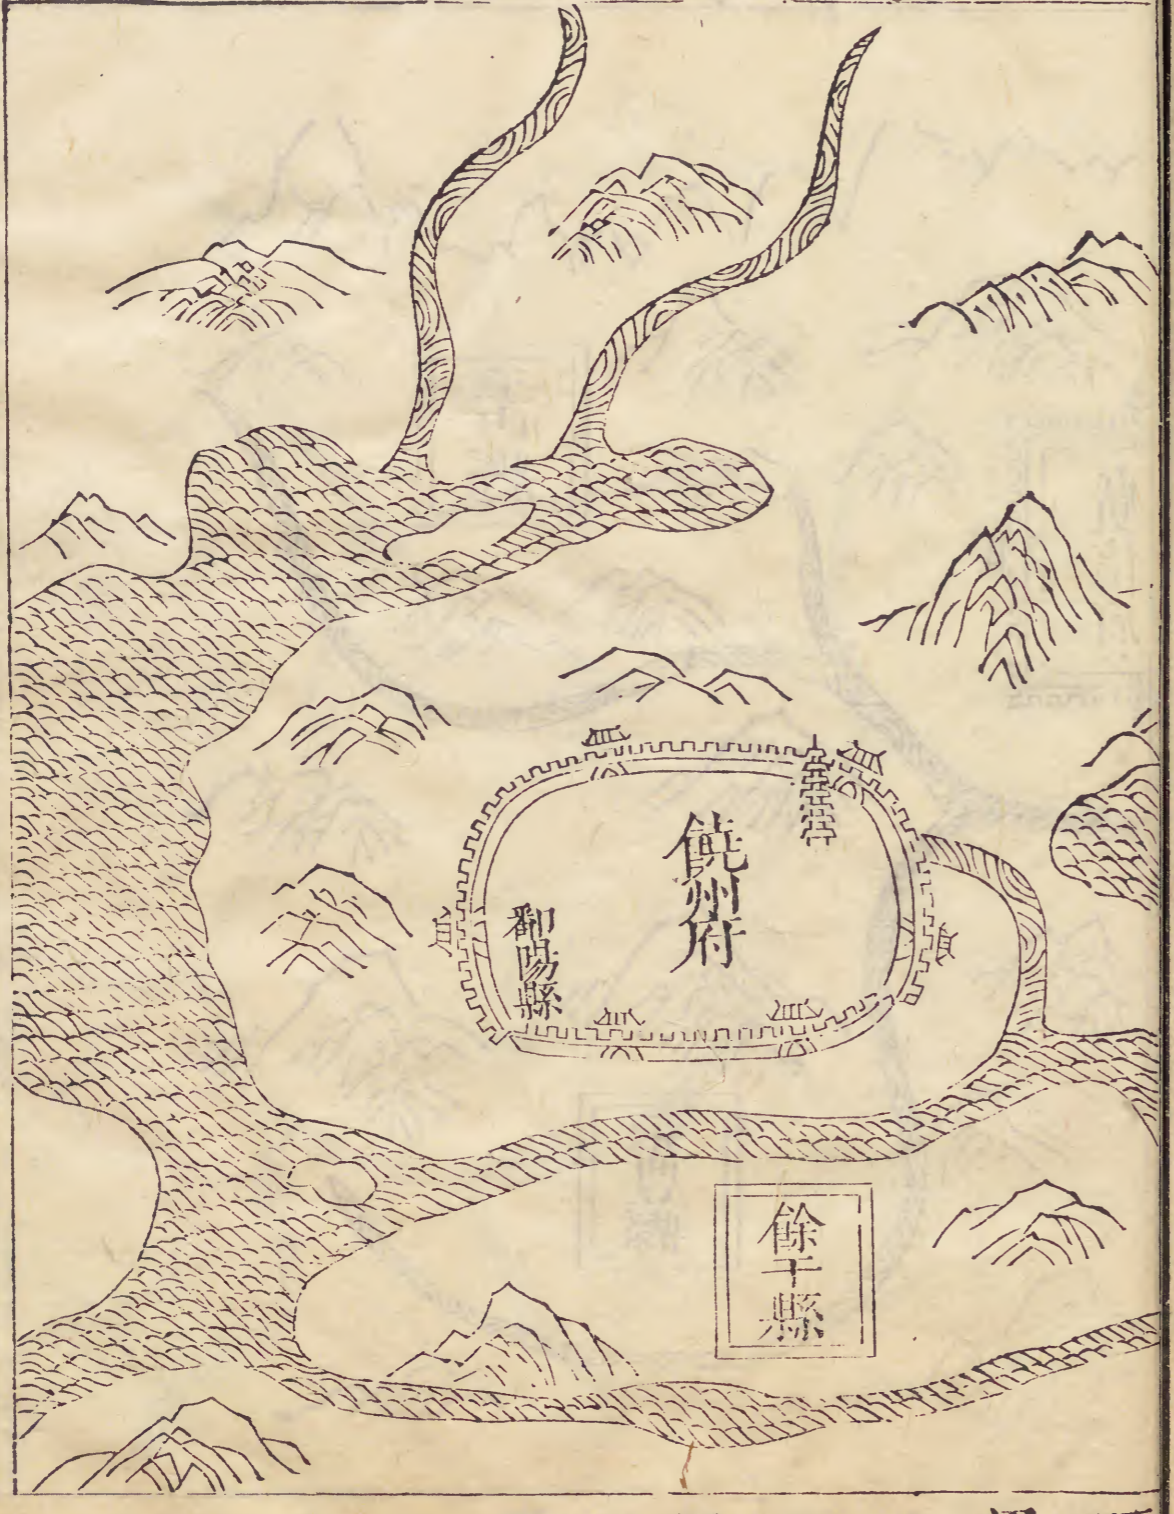 饒州府
鄱陽縣
餘干縣